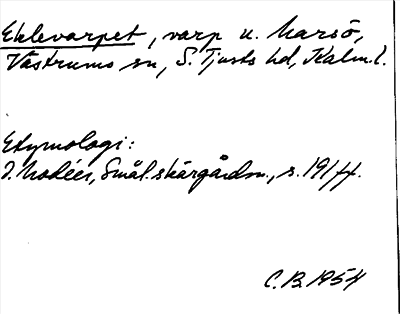 Eklevarpet, varp u. Marsö,
Västrums sn, S. Tjusts hd, Kalm. l.
Etymologi:
I. Modéer, Smål. skärgårdsn., s. 19 ff.
C.B. 1954